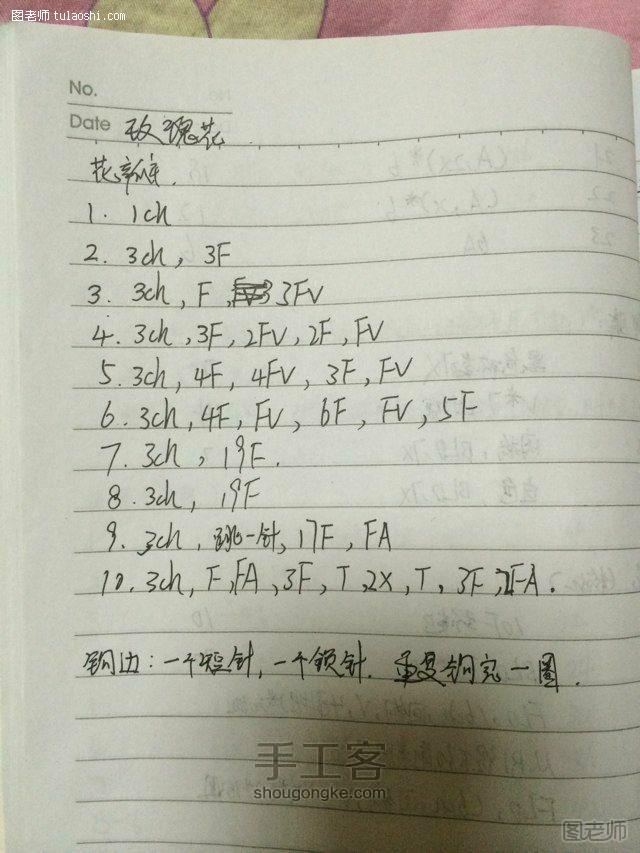 图老师 tulaoshi.com
No.
Date 玫瑰花
花瓣.
1. 1ch
2. 3ch, 3F
3. 3ch, F, 3FV
4. 3ch, 3F, 2FV, 2F, FV
5. 3ch, 4F, 4FV, 3F, FV
6. 3ch, 4F, FV, 6F, FV, 5F
7. 3ch, 19F.
8. 3ch, 19F
9. 3ch, 跳一针, 17F, FA
10. 3ch, F, FA, 3F, T, 2X, T, 3F, FA.
钩边: 一个短针, 一个锁针. 重复钩完一圈.
手工客
shougongke.com
图老师